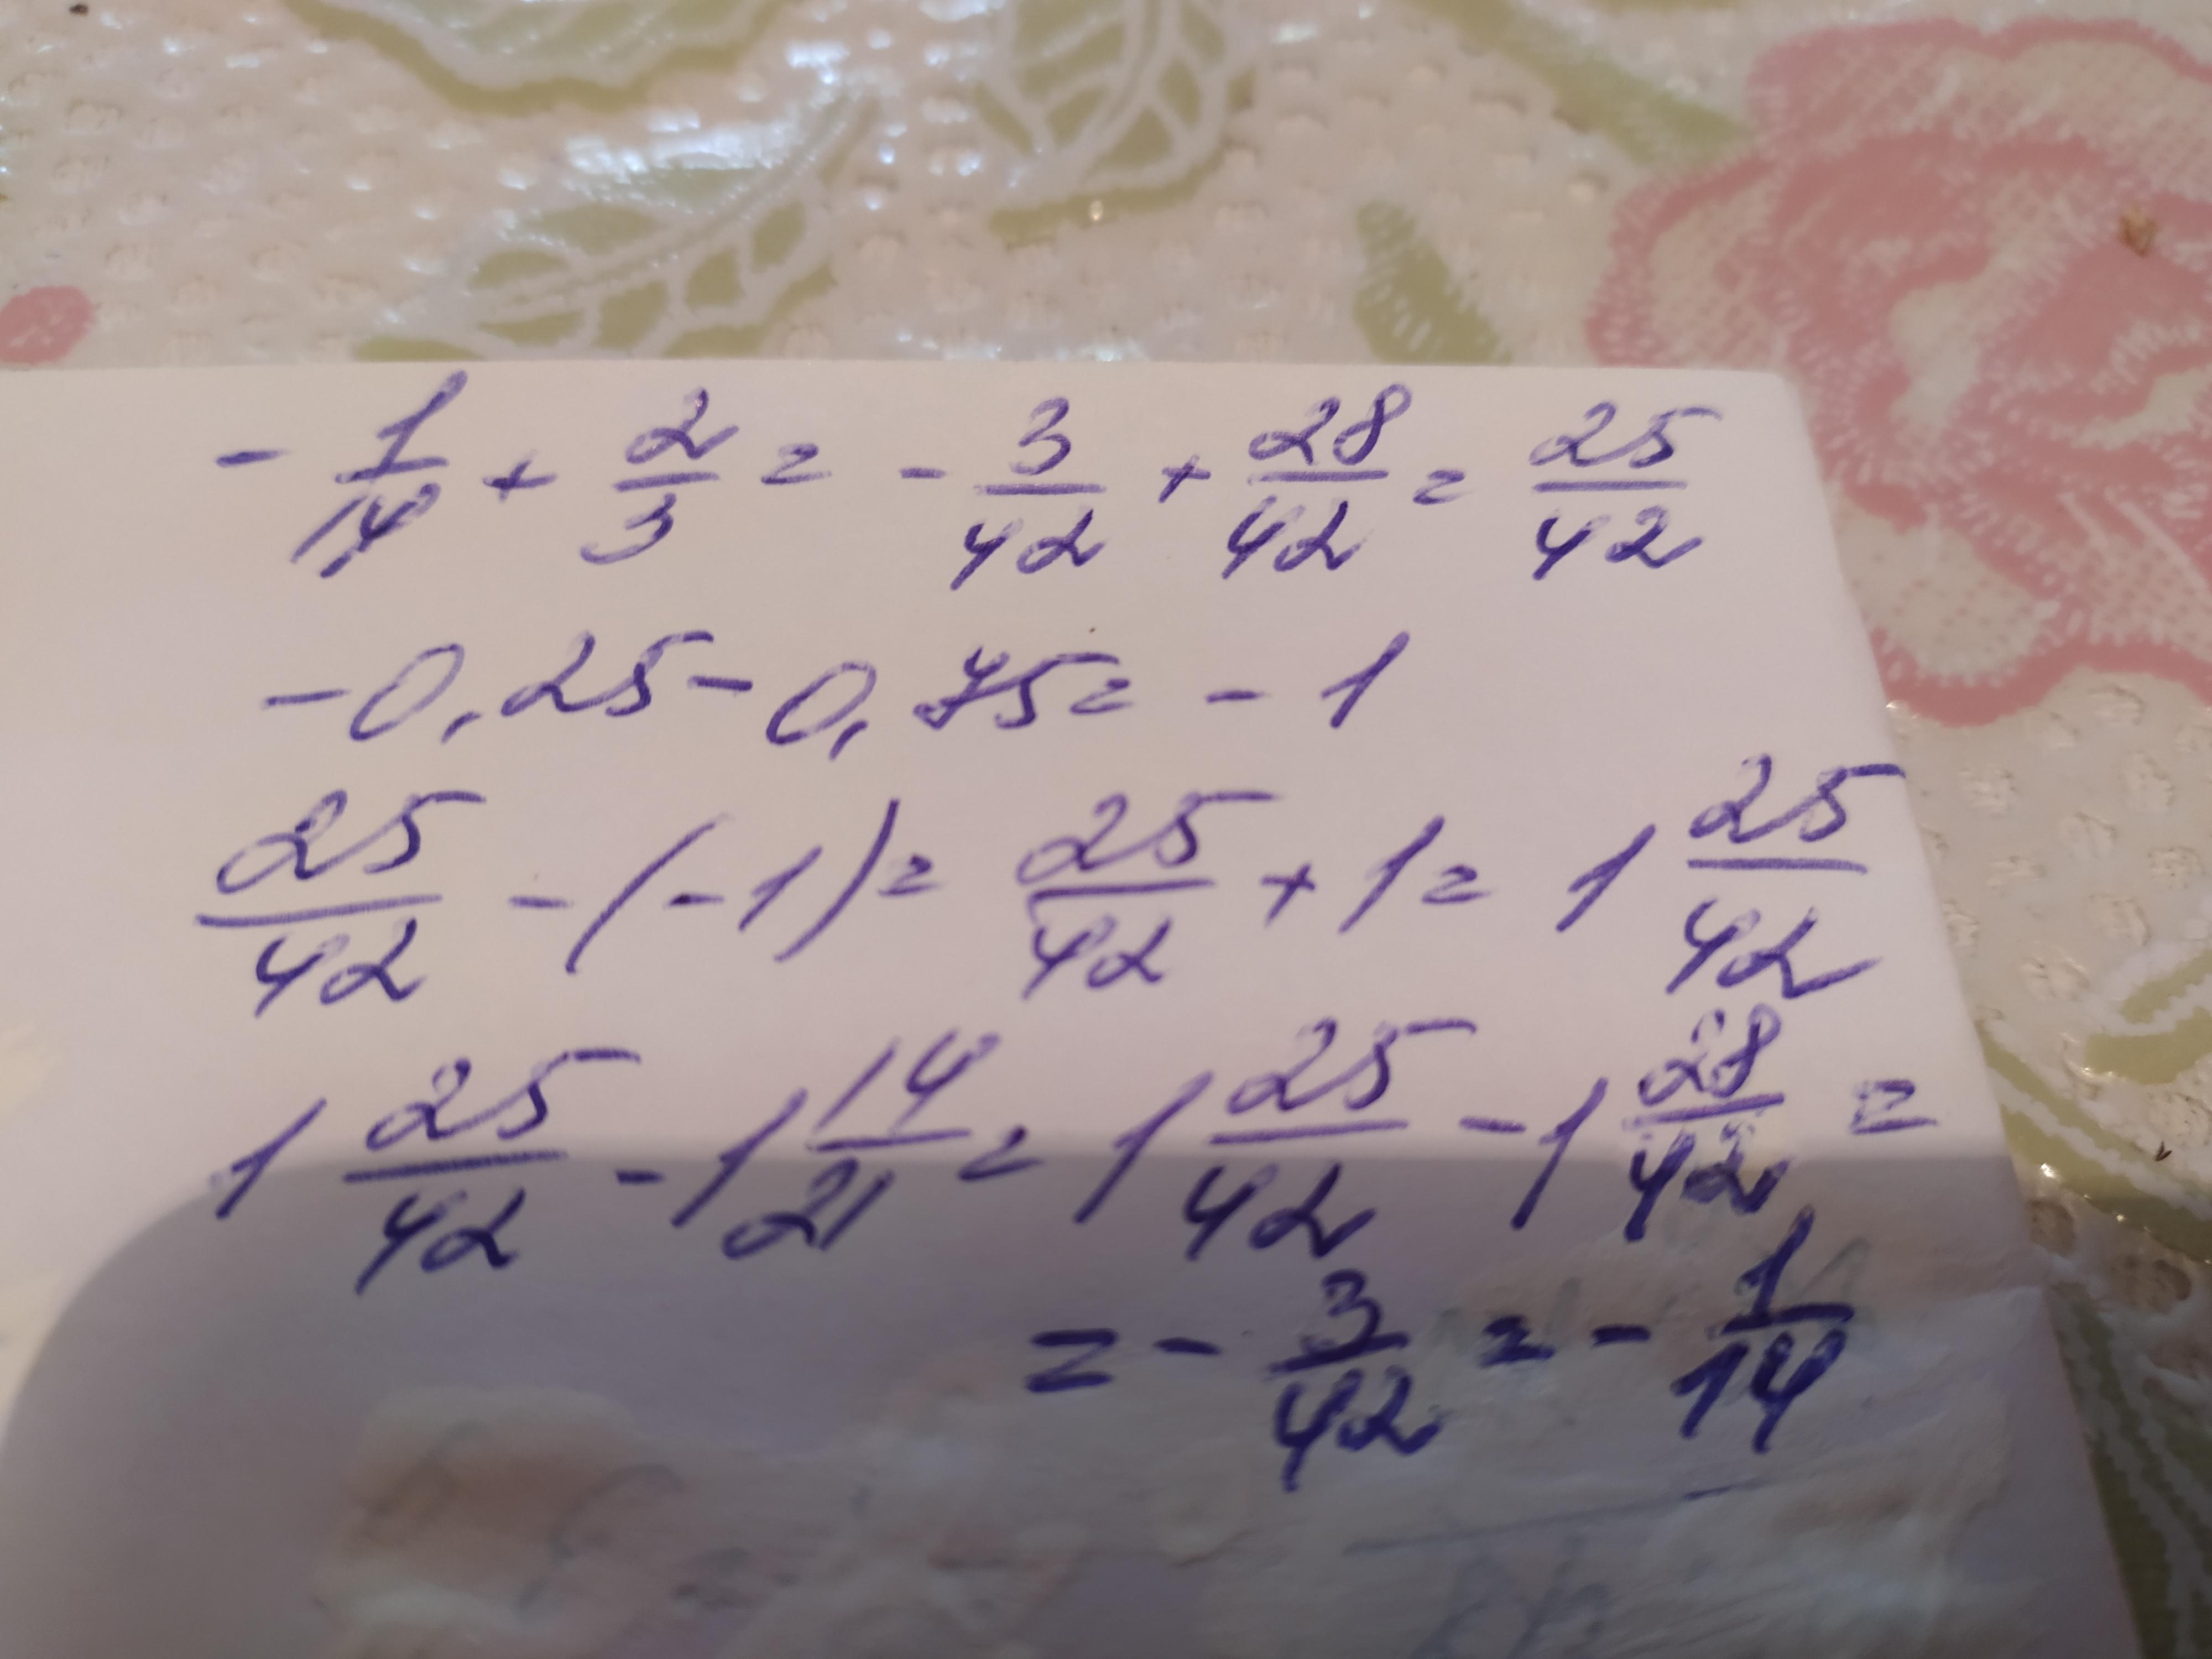 - 1/14 + 2/3 = - 3/42 + 28/42 = 25/42
-0,25-0,75= - 1
25/42 -(-1)= 25/42 +1= 1 25/42
1 25/42 -1 14/21 = 1 25/42 -1 28/42 =
= - 3/42 = - 1/14